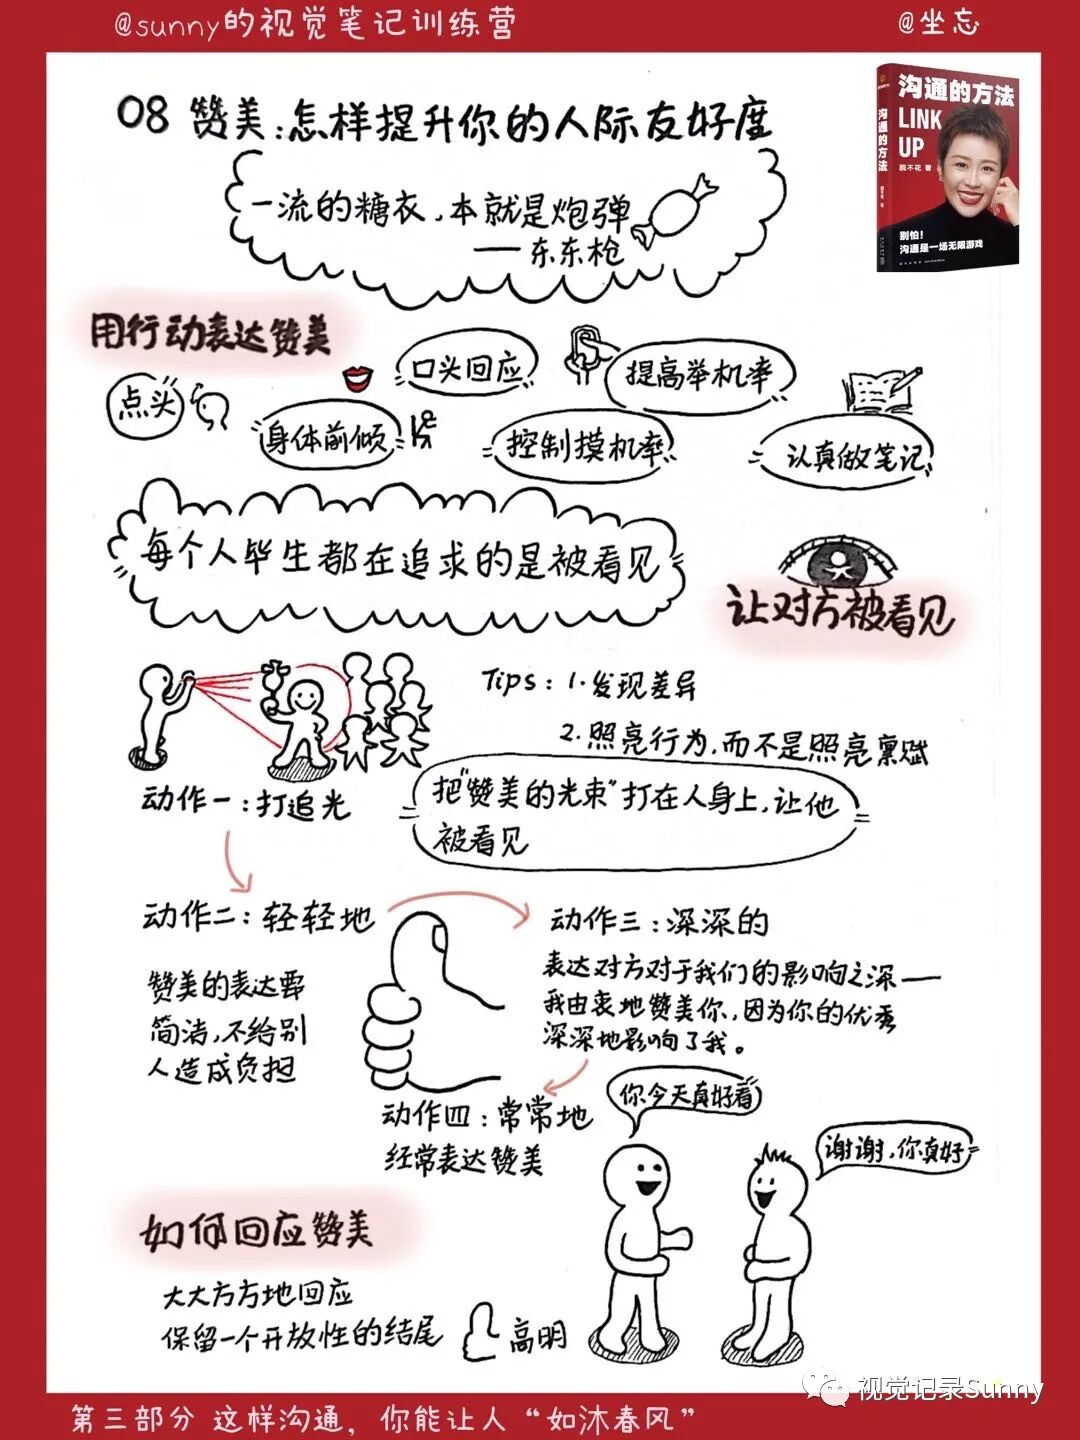 @sunny的视觉笔记训练营
@坐忘
08 赞美:怎样提升你的人际友好度
沟通的方法
LINK
UP
脱不花 著
别怕!
沟通是一场无限游戏
沟通的方法
一流的糖衣,本就是炮弹
——东东枪
用行动表达赞美
点头
身体前倾
口头回应
控制摸机率
提高举机率
认真做笔记
每个人毕生都在追求的是被看见
让对方被看见
Tips:1.发现差异
2.照亮行为,而不是照亮禀赋
动作一:打追光
把"赞美的光束"打在人身上,让他
被看见
动作二:轻轻地
赞美的表达要
简洁,不给别
人造成负担
动作三:深深的
表达对方对于我们的影响之深——
我由衷地赞美你,因为你的优秀
深深地影响了我。
动作四:常常地
经常表达赞美
你今天真好看
谢谢,你真好
如何回应赞美
大大方方地回应
保留一个开放性的结尾
高明
视觉记录Sunny
第三部分 这样沟通,你能让人“如沐春风”